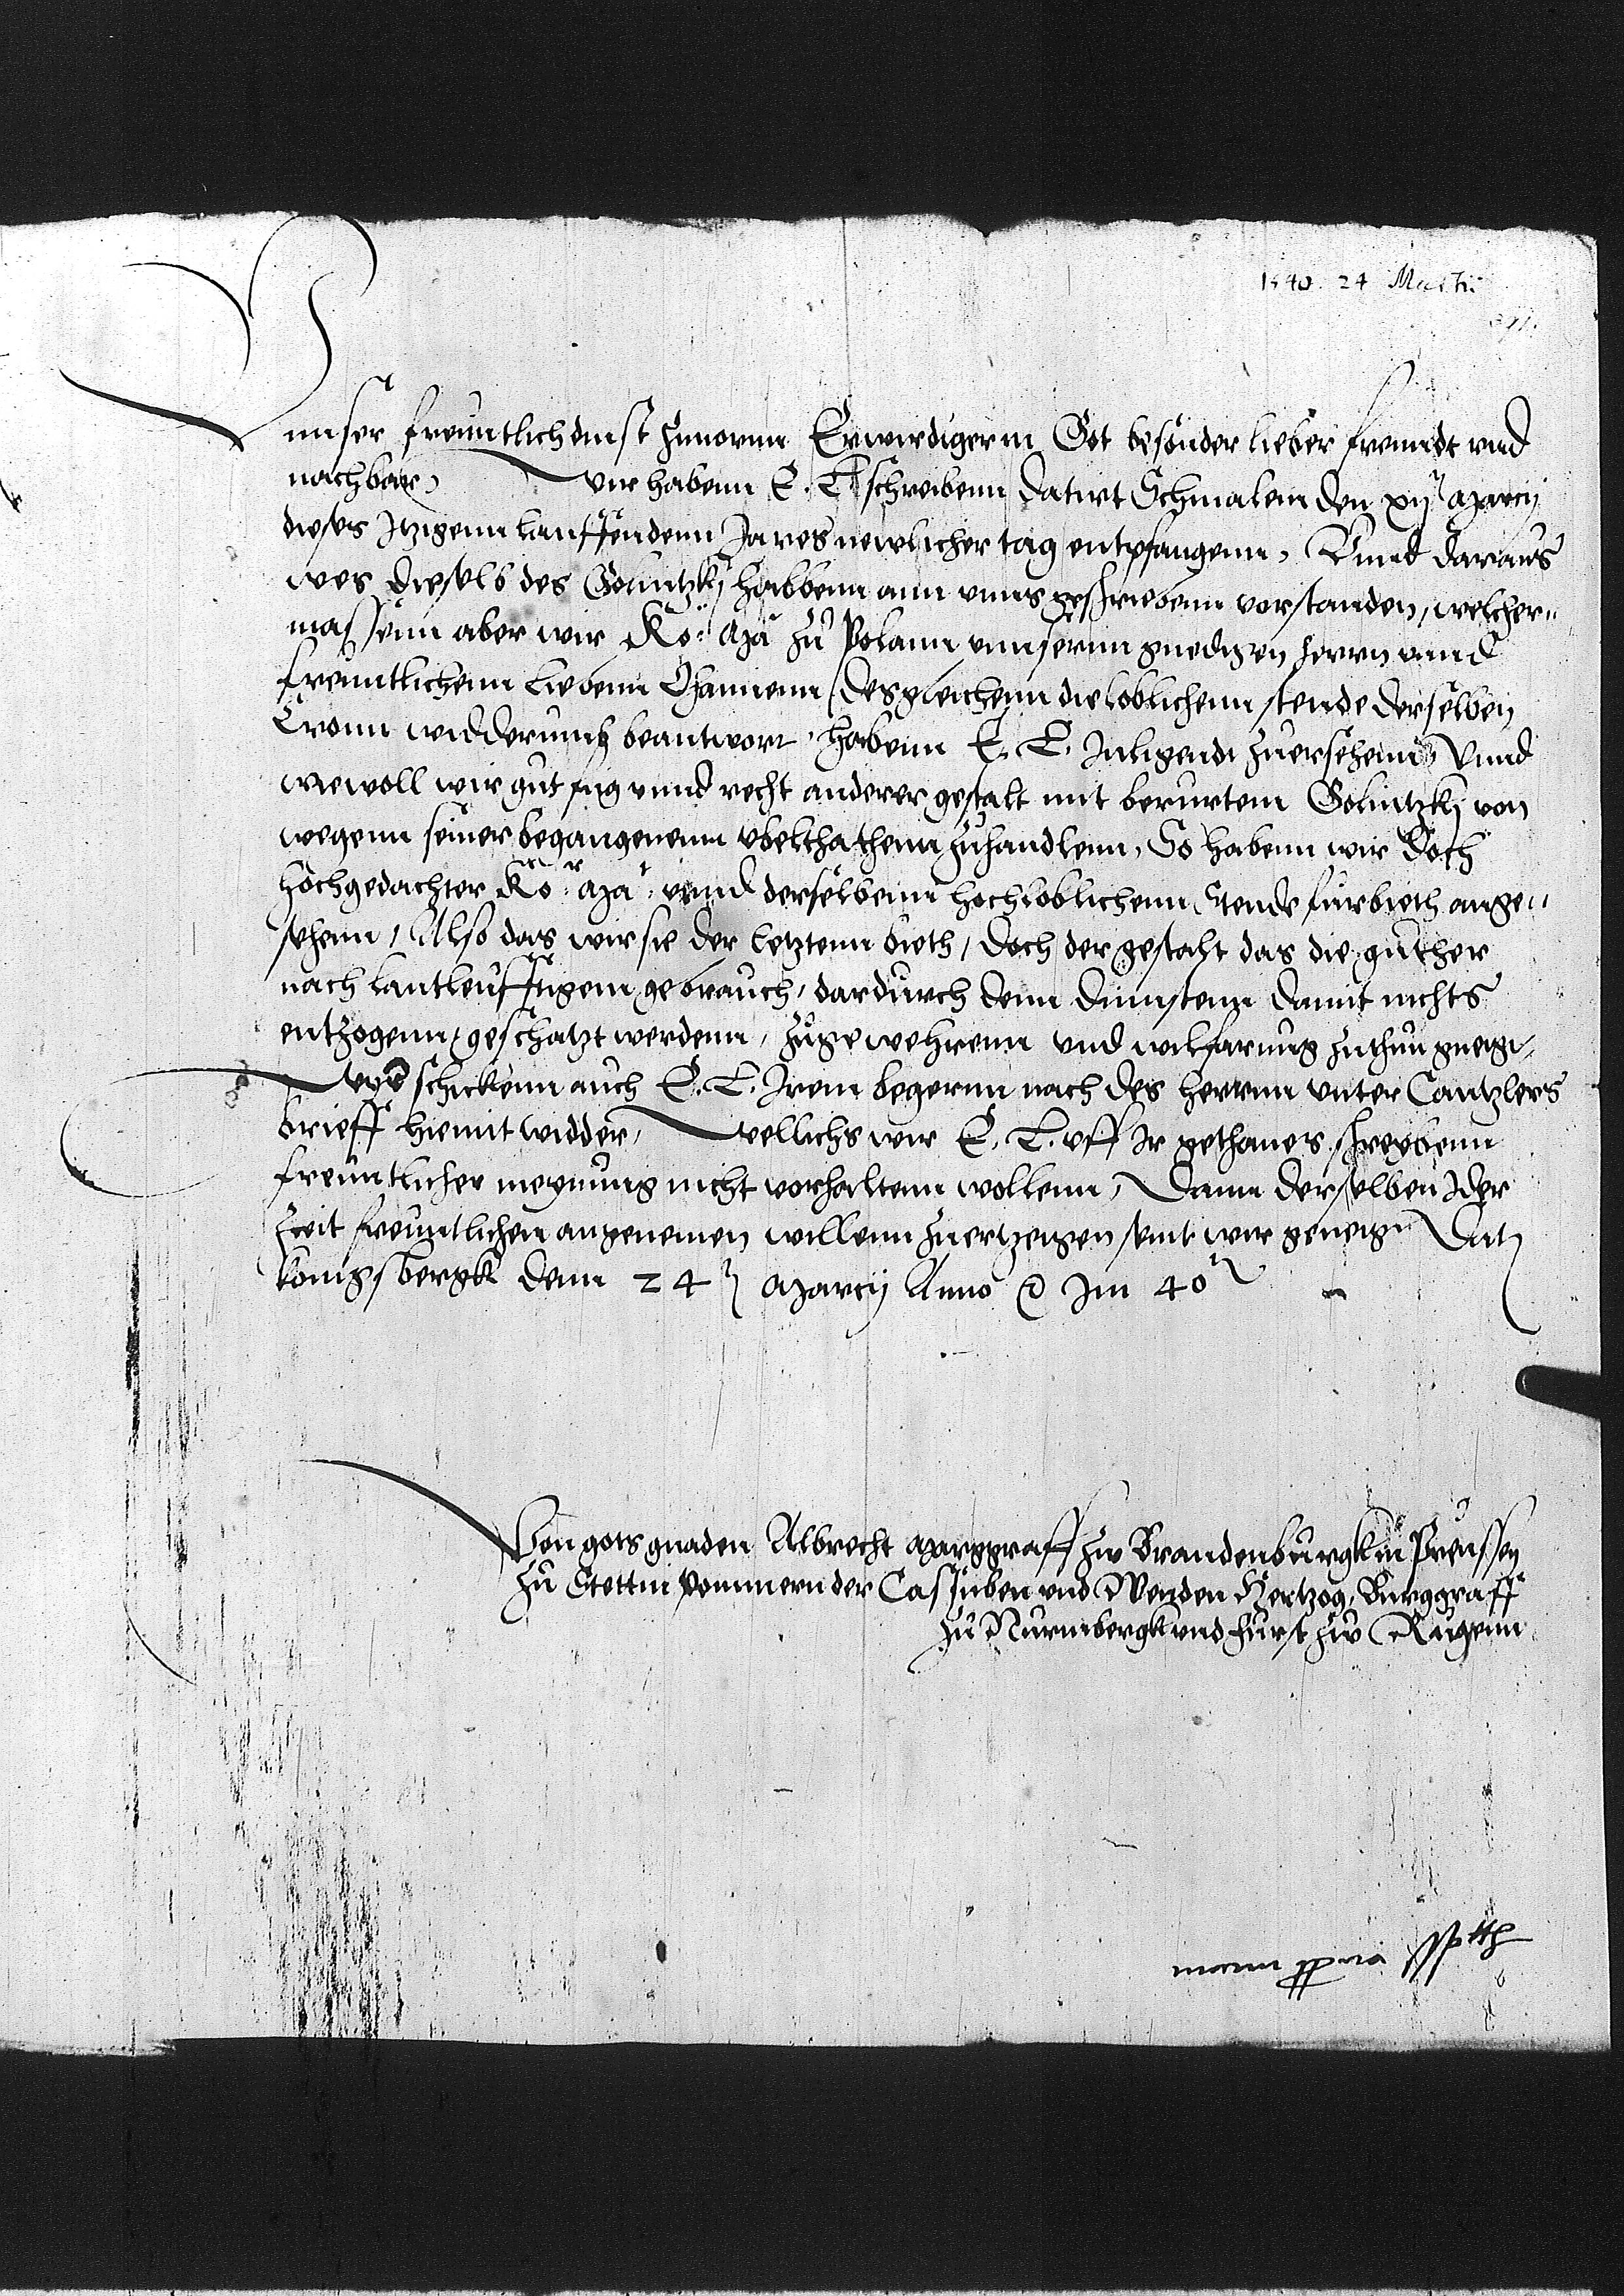 1540. 24 Martii
Vnnser freuntlich dinst zuuornn Erwirdiger in Got besonder lieber freundt vnd
nachbar, Wir habenn E. L. schreibenn datirt Schmalein den xij Marcij
dieses Itzigenn lauffendenn Jares newlicher tag entpfangenn, Vnnd daraus
wes dieselb des Golintzkj halbenn ann vnns geschriebenn vorstanden, welcher„
massenn aber wir Ko: Ma: zu Polann vnnsernn gnedigen herrn vnnd
freuntlichenn liebenn Ohamenn, desgleichenn die loblichenn stende derselben
Cronn widderumb beantwort, habenn E. L. Inligendt zuersehenn, Vnnd
wiewoll wir gut fug vnnd recht anderer gestalt mit berurtem Golintzkj von
wegenn seiner begangenenn vbelthathenn zuhandlenn, So habenn wir doch
hochgedachter Ko: Ma: vnnd derselbenn hochloblichenn Stende furbieth ange„
sehenn, Also das wir sie der letztenn bieth, doch der gestalt das die guther
nach lantleufftigem gebrauch, dardurch denn dinnstenn damit nichts
entzogenn, geschatzt werdenn, zugewehrenn vnd wilfarung zuthun gneigt,
Wyr schickenn auch E. L. Irem begernn nach des herrnn vnter Cantzlers
brieff hiemit widder, Wellichs wir E. L. vff Ir gethanes schreybenn
freuntlicher meynung nicht vorhaltenn wollenn, Dann derselben Ider
Zeit freuntlichen angenemen willenn zuertzeigen seint wir geneigt Dat
konigsbergk denn 24 Marcij Anno &c Im 40
Von gots gnaden Albrecht Marggraff zw Brandenburgk in Preussen
zu Stettin Pommern der Cassuben vnd Wenden Hertzog, Burggraff
zu Nurmbergk vnd Furst zw Rugenn
manu ppria sspth